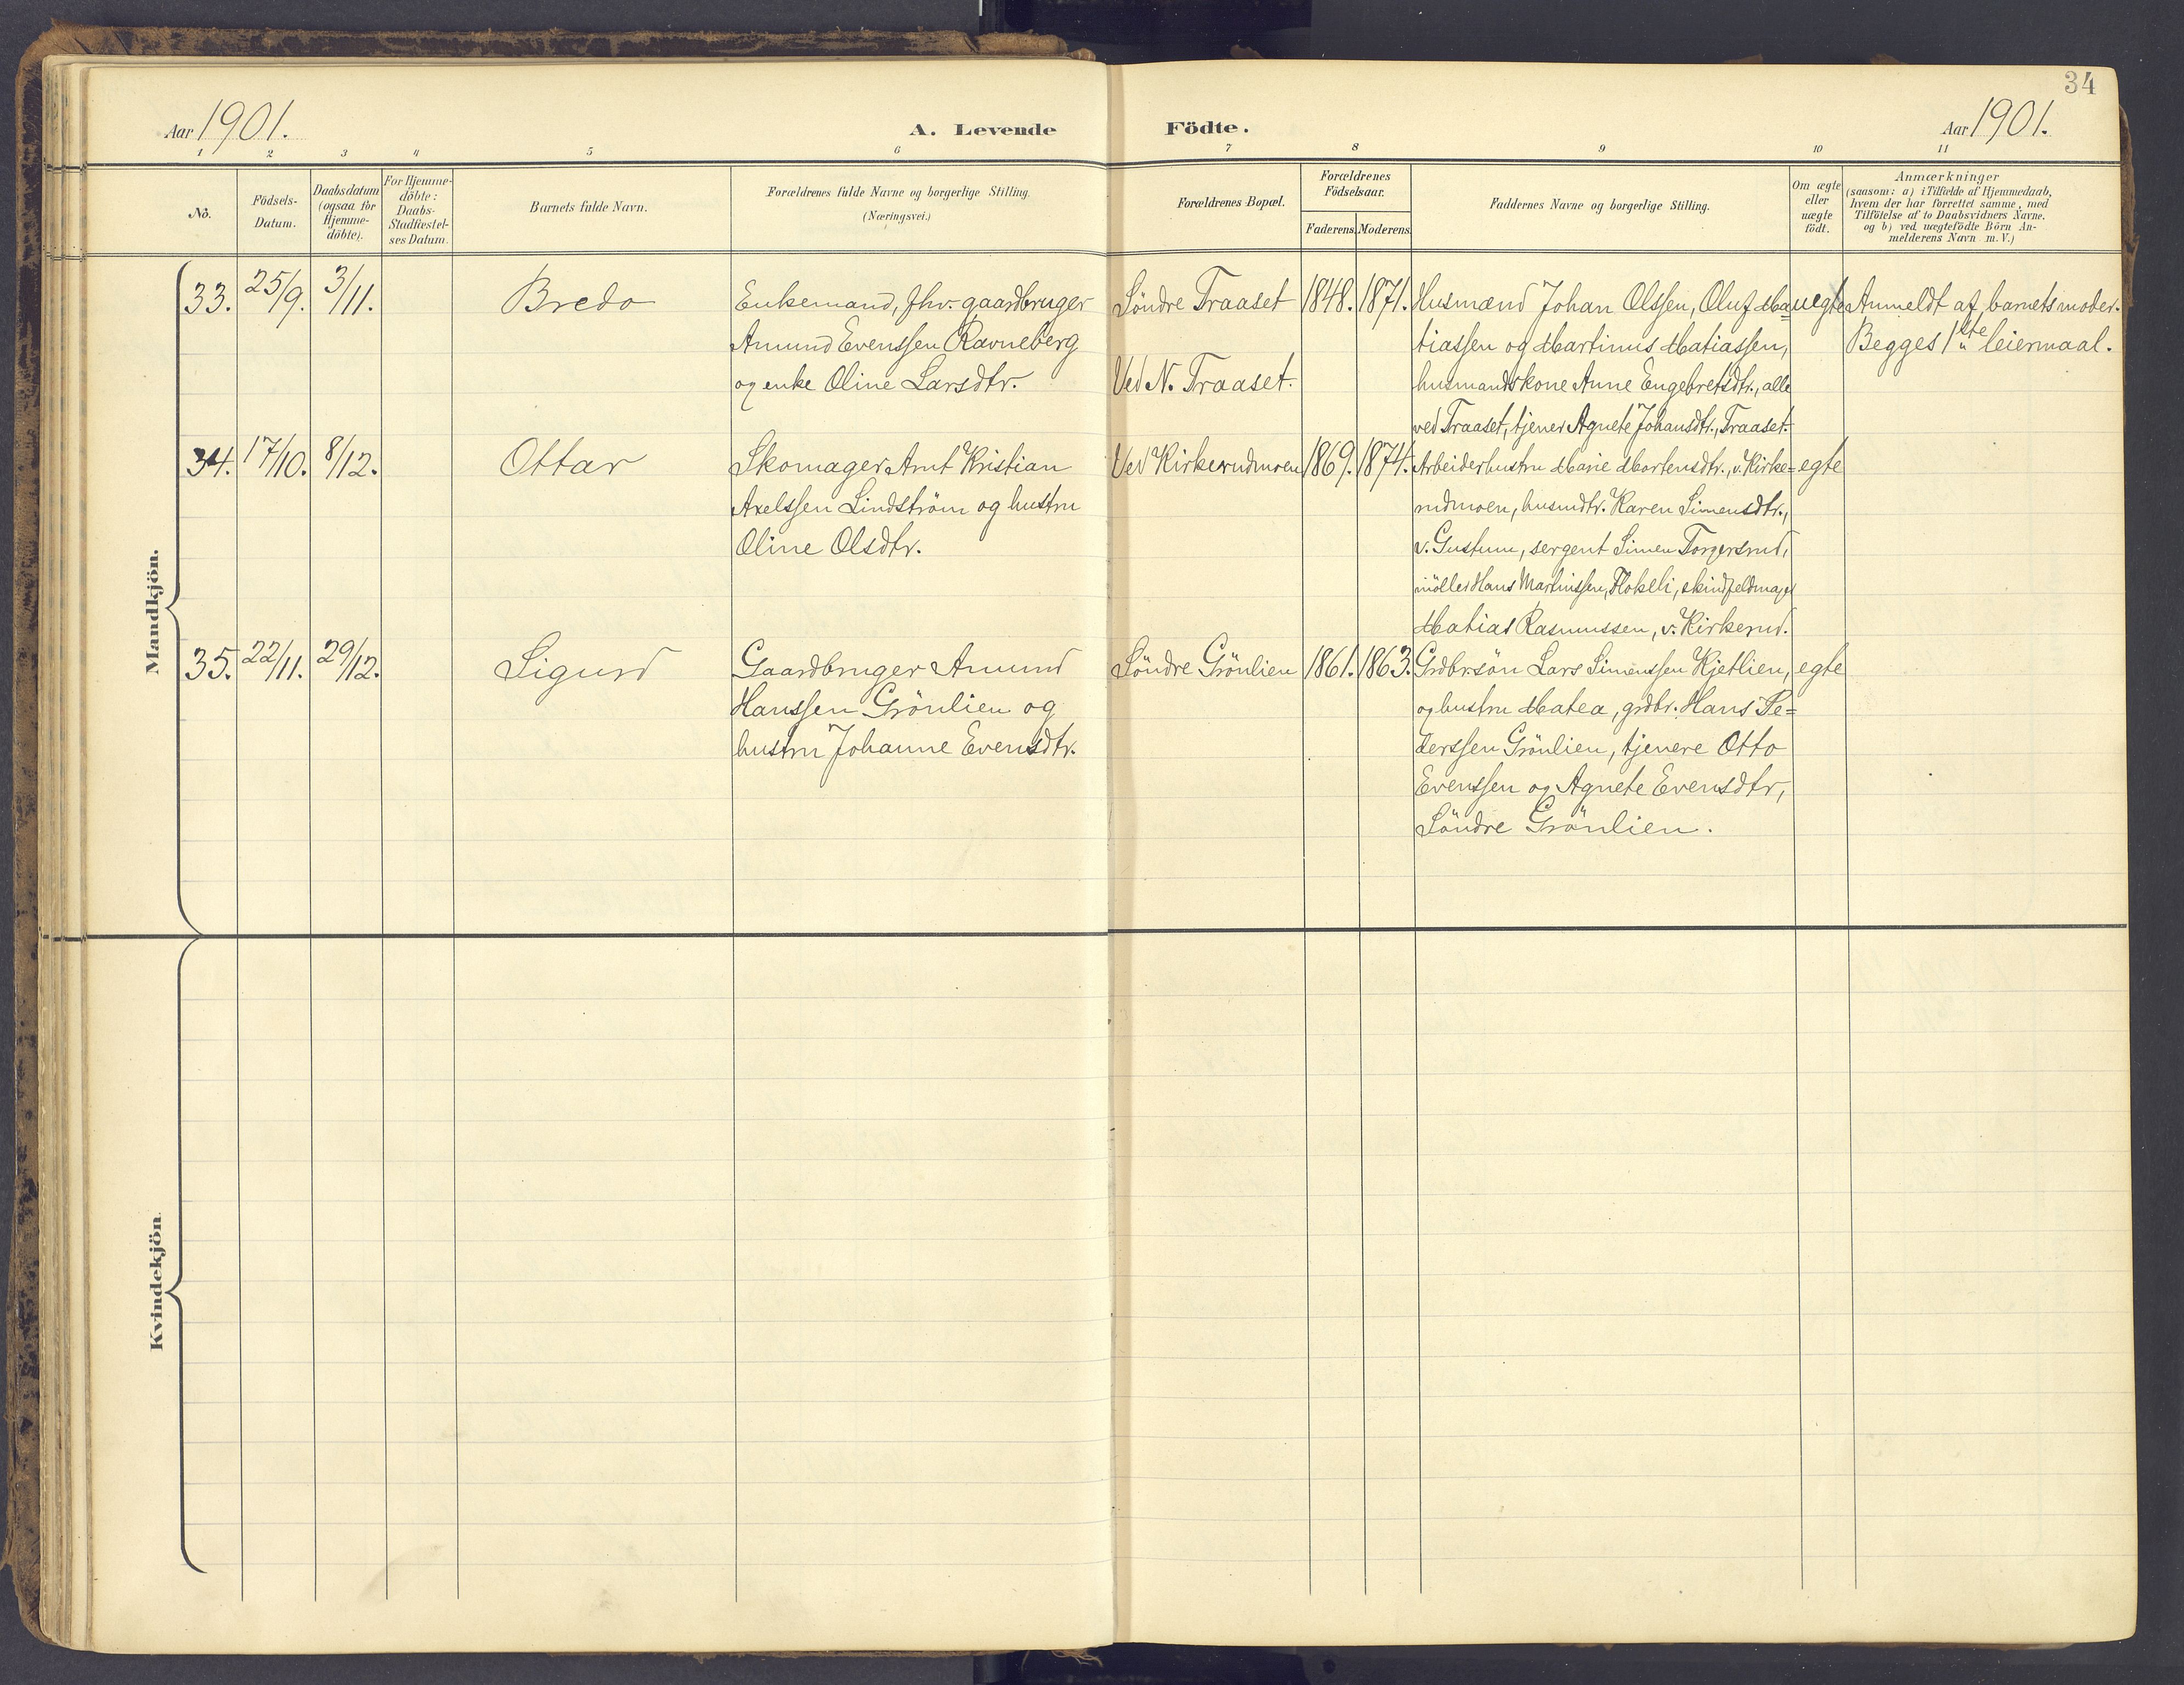 34
Aar 1901.
A. Levende Födte.
Aar 1901.
1 2 3 4 5 6 7 8 9 10 11
No.
Födsels-
Datum.
Daabsdatum
(ogsaa for
Hjemme-
döbte).
For Hjemme-
döbte:
Daabs-
Stadfæstel-
ses Datum.
Barnets fulde Navn.
Forældrenes fulde Navne og borgerlige Stilling.
(Næringsvei.)
Forældrenes Bopæl.
Forældrenes
Födselsaar.
Faderens. Moderens.
Faddernes Navne og borgerlige Stilling.
Om ægte
eller
uægte
födt.
Anmærkninger
(saasom: a) i Tilfælde af Hjemmedaab,
hvem der har forrettet samme, med
Tilföielse af to Daabsvidners Navne.
og b) ved uægtefödte Börn An-
melderens Navn m. V.)
Mandkjön.
33. 25/9. 3/11. Bredo
Enkemand, fhv. gaardbruger
Amund Evenssen Ravneberg
og enke Oline Larsdtr.
Söndre Traaset
Ved N. Traaset.
1848. 1871.
Husmænd Johan Olssen, Oluf Ma=
tiassen og Martinus Matiassen,
husmandskone Anne Engebretsdtr., alle
ved Traaset, tjener Agnete Johansdtr., Traaset.
uegte
Anmeldt af barnets moder.
Begges 1ste leiermaal.
34. 17/10. 8/12. Ottar
Skomager Arnt Kristian
Axelssen Lindström og hustru
Oline Olsdtr.
Ved Kirkerudmoen
1869. 1874.
Arbeiderhustru Marie Mortensdtr., v. Kirke=
rudmoen, husmdtr. Karen Simensdtr.,
v. Gustum, sergent Simen Torgersrud,
möller Hans Martinssen, Flokeli, skindfeldmager
Matias Rasmussen, v. Kirkerud.
egte
35. 22/11. 29/12. Sigurd
Gaardbruger Amund
Hanssen Grönlien og
hustru Johanne Evensdtr.
Söndre Grönlien
1861. 1863.
Grdbr.sön Lars Simenssen Kjetlien,
og hustru Matea, grdbr. Hans Pe=
derssen Grönlien, tjenere Otto
Evenssen og Agnete Evensdtr,
Söndre Grönlien.
egte
Kvindekjön.